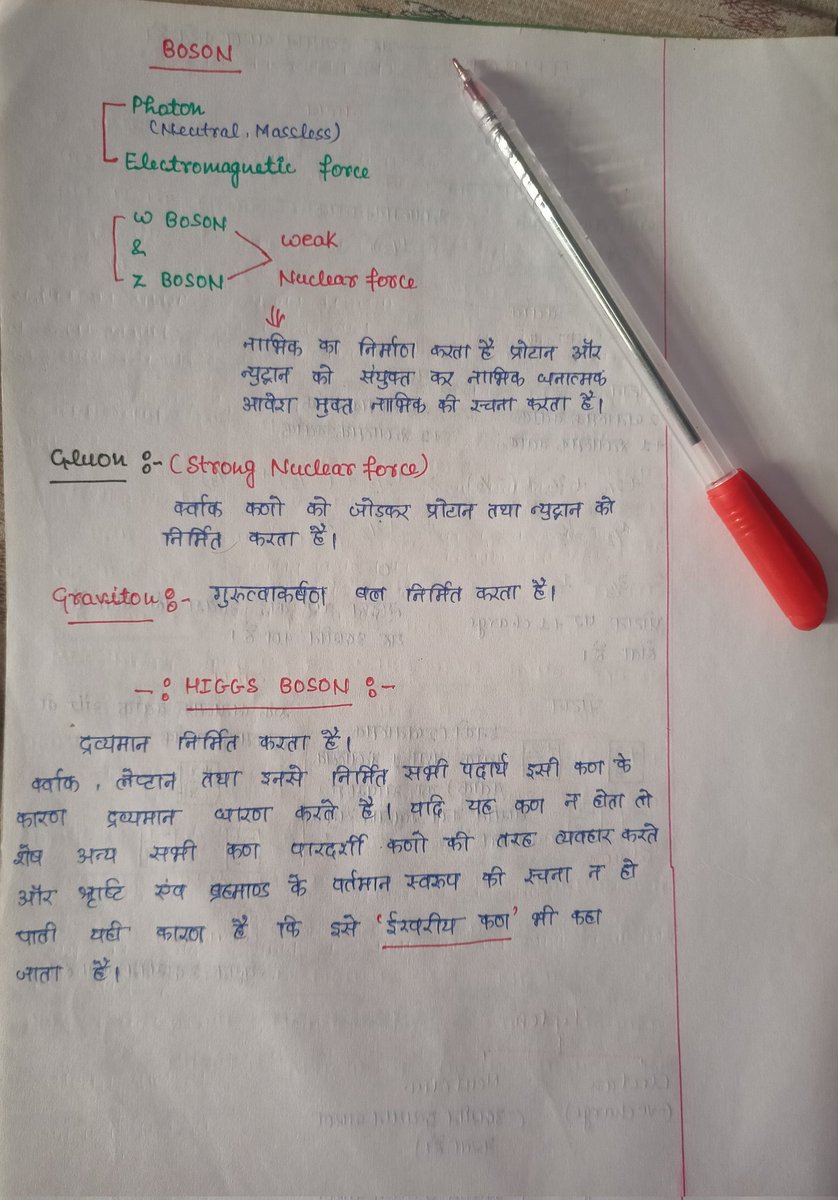 BOSON
Photon
(Neutral, Massless)
Electromagnetic force
W BOSON
&
Z BOSON
Weak
Nuclear force
नाभिक का निर्माण करता है प्रोटान और
न्युट्रान को संयुक्त कर नाभिक धनात्मक
आवेश मुक्त नाभिक की रचना करता है।
Gluon :- (Strong Nuclear force)
क्वार्क कणो को जोड़कर प्रोटान तथा न्युट्रान को
निर्मित करता है।
Graviton :- गुरुत्वाकर्षण बल निर्मित करता है।
-: HIGGS BOSON :-
द्रव्यमान निर्मित करता है।
क्वार्क, लेप्टान तथा इनसे निर्मित सभी पदार्थ इसी कण के
कारण द्रव्यमान धारण करते है। यदि यह कण न होता तो
शेष अन्य सभी कण पारदर्शी कणो की तरह व्यवहार करते
और श्रृष्टि एंव ब्रह्माण्ड के वर्तमान स्वरूप की रचना न हो
पाती यही कारण है कि इसे 'ईश्वरीय कण' भी कहा
जाता है।